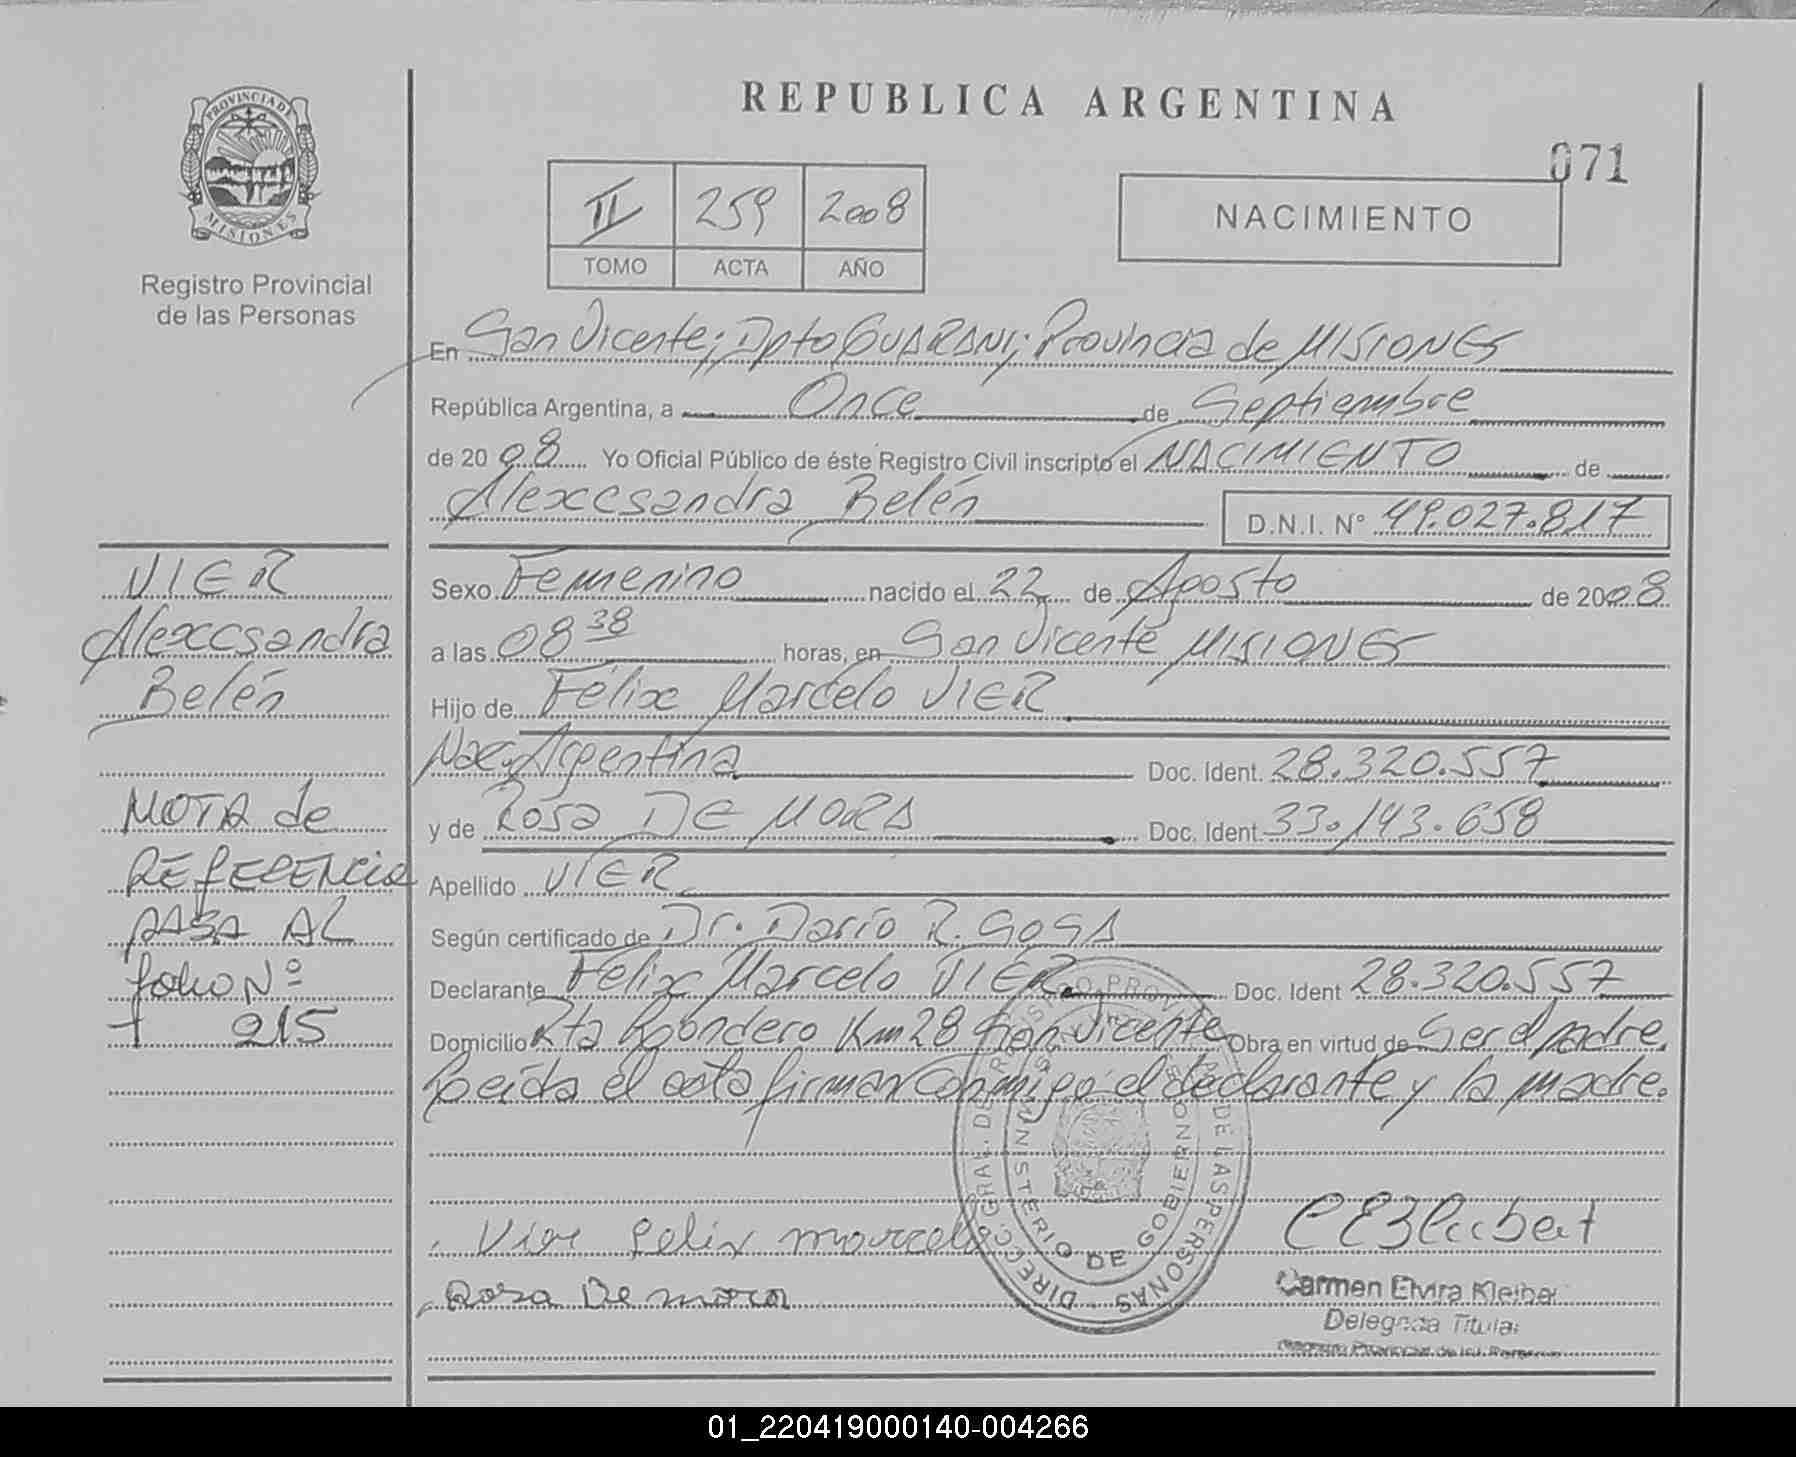 REPUBLICA ARGENTINA
071
PROVINCIA DE
MISIONES
Registro Provincial
de las Personas
II 259 2008
TOMO ACTA AÑO
NACIMIENTO
En San Vicente; Dpto GUARANI; Provincia de MISIONES
República Argentina, a Once de Septiembre
de 20 08 Yo Oficial Público de éste Registro Civil inscripto el NACIMIENTO de
Alexcsandra Belén D.N.I. N° 49.027.817
Sexo Femenino nacido el 22 de Agosto de 2008
a las 08 38 horas, en San Vicente MISIONES
Hijo de Félix Marcelo VIER
Nac. Argentina Doc. Ident. 28.320.557
y de Rosa DE MORA Doc. Ident. 33.143.658
Apellido VIER
Según certificado de Dr. Darío R. SOSA
Declarante Félix Marcelo VIER Doc. Ident 28.320.557
Domicilio Rta Km 28 San Vicente Obra en virtud de Ser el padre.
Leída el acta firman conmigo el declarante y la madre.
Vier felix marcelo
Rosa De mora
Carmen Elvira Kleiber
Delegada Titular
Registro Provincial de las Personas
DIRECC. GRAL. DE REGISTRO PROV. DE LAS PERSONAS
MINISTERIO DE GOBIERNO
VIER
Alexcsandra
Belén
NOTA de
REfERENcia
PASA AL
folio Nº
215
01_220419000140-004266